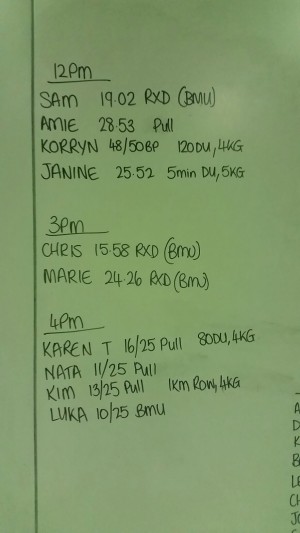 12pm
SAM 19.02 RXD (BMU)
AMIE 28.53 Pull
KORRYN 48/50BP 120DU, 4KG
JANINE 25.52 5min DU, 5KG
3pm
CHRIS 15.58 RXD (BMU)
MARIE 24.26 RXD (BMU)
4pm
KAREN T 16/25 Pull 80DU, 4KG
NATA 11/25 Pull
KIM 13/25 Pull 1KM Row, 4KG
LUKA 10/25 BMU